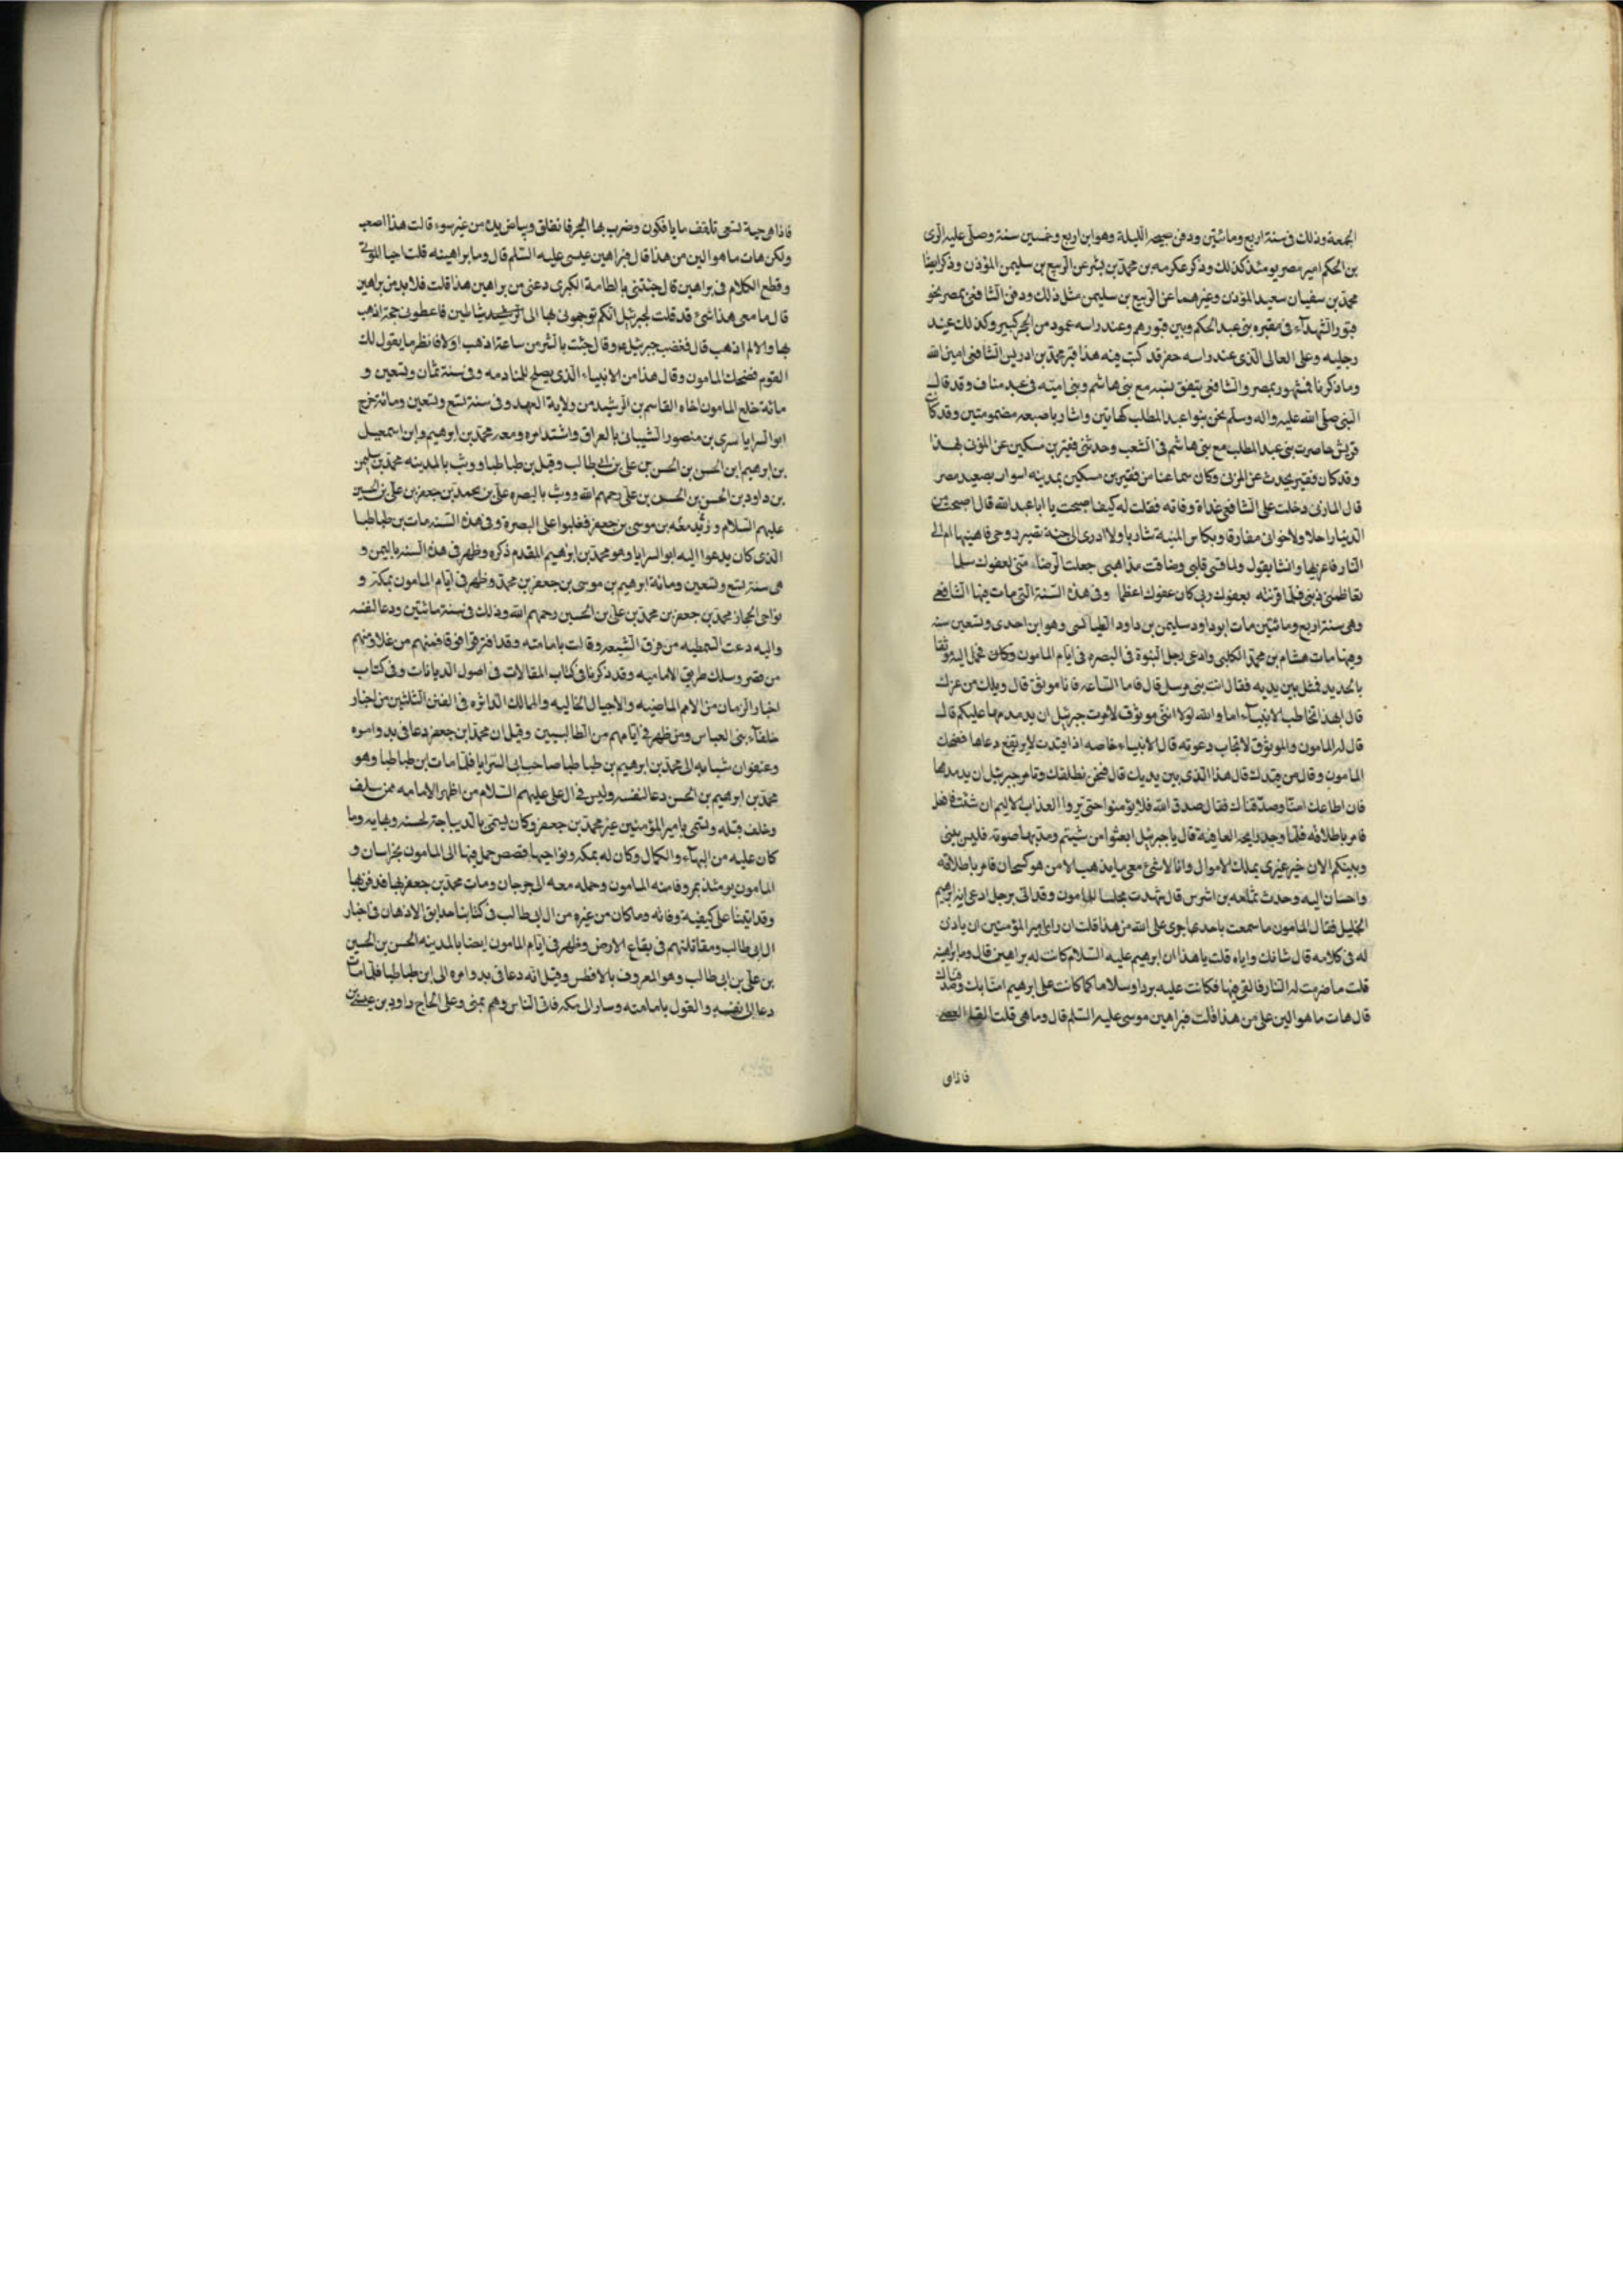 الجمعة وذلك فى سنة اربع ومائتين ودفن صبيحه الليلة وهو ابن اربع وخمسين سنة وصلى عليه السرى
بن الحكم امير مصر يومئذ كذلك وذكر عكرمه بن محمد بن بشر عن الربيع بن سليمن المؤذن وذكر ايضا
محمد بن سفيان سعيد المؤذن وغيرهما عن الربيع بن سليمن مثل ذلك ودفن الشافعى بمصر نحو
قبور الشهدآء فى مقبره بنى عبد الحكم وبين قبورهم وعند راسه عمود من الحجر كبير وكذلك عند
رجليه وعلى العالى الذى عند راسه حفر قد كتب فيه هذا قبر محمد بن ادريس الشافعى امين الله
وما ذكرنا فمشهور بمصر والشافعى يتفق نسبه مع بنى هاشم وبنى اميه فى عبد مناف وقد قال
النبى صلى الله عليه واله وسلم نحن بنوا عبد المطلب كهاتين واشار باصبعه مضمومتين وقد كان
قريش حاصرت بنى عبد المطلب مع بنى هاشم فى الشعب وحدثنى فقير بن مسكين عن المزنى بهذا
وقد كان فقير يحدث عن المزنى وكان سماعنا من فقير بن مسكين بمدينه اسوان بصعيد مصر
قال المازنى دخلت على الشافعى غداة وفاته فقلت له كيف اصبحت يا ابا عبد الله قال اصبحت من
الدنيا راحلا ولاخوانى مفارقا وبكاس المنية شاربا ولا ادرى الى جنة تصير روحى فاهنيها ام الى
النار فاعزيها وانشا يقول ولما قسى قلبى وضاقت مذاهبى جعلت الرضا منى لعفوك سلما
تعاظمنى ذنبى فلما قرنته بعفوك ربى كان عفوك اعظما وفى هذه السنة التى مات فيها الشافعى
وهى سنة اربع ومائتين مات ابو داود سليمن بن داود الطيالسى وهو ابن احدى وتسعين سنه
وفيها مات هشام بن محمد الكلبى وادعى رجل النبوة فى البصره فى ايام المامون وكان حمل اليه موثقا
بالحديد فمثل بين يديه فقال انت نبى مرسل قال فاما الساعه فانا موثق قال ويلك من غرك
قال ابهذا تخاطب الانبيآء اما والله لولا اننى موثوق لامرت جبرئيل ان يدمدمها عليكم قال
قال له المامون والموثوق لا تجاب دعوته قال الانبياء خاصه اذا قيدت لا يرتفع دعاها فضحك
المامون وقال من قيدك قال هذا الذى بين يديك قال فنحن نطلقك وتامر جبرئيل ان يدمدمها
فان اطاعك امنا وصدقناك فقال صدق الله فلا يؤمنوا حتى يروا العذاب الاليم ان شئت فافعل
فامر باطلاقه فلما وجد رايحه العافية قال يا جبرئيل ابعثوا من شيتم ومد بها صوته فليس بينى
وبينكم الان خير غيرى يملك الاموال وانا لا شئ معى ما يذهب لا من هو كسحان فامر باطلاقه
واحسان اليه وحدث ثمامه بن اشرس قال شهدت مجلسا للمامون وقد اتى برجل ادعى انه ابرهيم
الخليل فقال المامون ما سمعت باحد اجرى على الله من هذا قلت ان راى امير المؤمنين ان ياذن
له فى كلامه قال شانك واياه قلت يا هذا ان ابرهيم عليه السلام كانت له براهين قال وما براهينه
قلت ما ضرمت له النار فالقى فيها فكانت عليه بردا وسلاما كما كانت على ابرهيم امنا بك وصدقناك
قال هات ما هو الين على من هذا قلت فبراهين موسى عليه السلم قال وما هى قلت القا العصى
فاذاهى
فاذا هى حية تسعى تلقف ما يافكون وضرب بها البحر فانفلق وبياض يده من غير سوء قالت هذا اصعب
ولكن هات ما هو الين من هذا قال فبراهين عيسى عليه السلم قال وما براهينه قلت احيا الموتى
وقطع الكلام فى براهين قال جئتنى بالطامة الكبرى دعنى من براهين هذا قلت فلا بد من براهين
قال ما معى هذا شئ قد قلت لجبرئيل انكم توجهونى بها الى شياطين فاعطونى حجة اذهب
بها والا لم اذهب قال فغضب جبرئيل وقال جئت بالشر من ساعة اذهب اولا فانظر ما يقول لك
القوم فضحك المامون وقال هذا من الانبياء الذى يصلح للمنادمه وفى سنة ثمان وتسعين و
مائة خلع المامون اخاه القاسم بن الرشيد من ولاية العهد وفى سنة تسع وتسعين ومائة خرج
ابو السرايا سرى بن منصور الشيبانى بالعراق واشتد امره ومعه محمد بن ابرهيم وابن اسمعيل
بن ابرهيم ابن الحسن بن الحسن بن على بن ابى طالب وقيل بن طباطبا ووثب بالمدينه محمد بن سليمن
بن داود بن الحسن بن الحسن بن على رحمهم الله ووثب بالبصره على بن محمد بن جعفر بن على بن الحسين
عليهم السلام وزيد معه بن موسى بن جعفر فغلبوا على البصرة وفى هذه السنه مات بن طباطبا
الذى كان يدعوا اليه ابو السرايا وهو محمد بن ابرهيم المقدم ذكره وظهر فى هذه السنه باليمن و
هى سنة تسع وتسعين ومائة ابرهيم بن موسى بن جعفر بن محمد وظهر فى ايام المامون بمكة و
نواحى الحجاز محمد بن جعفر بن محمد بن على بن الحسين رحمهم الله وذلك فى سنة مائتين ودعا لنفسه
واليه دعت السمطيه من فرق الشيعه وقالت بامامته وقد افترقوا فرقا فمنهم من غلا ومنهم
من قصر وسلك طريق الاماميه وقد ذكرنا فى كتاب المقالات فى اصول الديانات وفى كتاب
اخبار الزمان من الامم الماضيه والاجيال الخاليه والممالك الداثره فى الفن الثلثين من اخبار
خلفآء بنى العباس ومن ظهر فى ايامهم من الطالبيين وقيل ان محمد ابن جعفر دعا فى بدو امره
وعنفوان شبابه الى محمد بن ابرهيم بن طباطبا صاحب ابى السرايا فلما مات ابن طباطبا وهو
محمد بن ابرهيم بن الحسن دعا لنفسه وليس فى ال على عليهم السلام من اظهر الامامه ممن سلف
وخلف قبله وتسمى بامير المؤمنين غير محمد بن جعفر وكان يسمى بالديباجة لحسنه وبهايه وما
كان عليه من البهآء والكمال وكان له بمكه ونواحيها قصص حمل فيها الى المامون بخراسان و
المامون يومئذ بمرو فامنه المامون وحمله معه الى جرجان ومات محمد بن جعفر بها فدفن بها
وقد اتينا على كيفية وفاته وما كان من غيره من ال ابى طالب فى كتابنا حدايق الاذهان فى اخبار
ال ابى طالب ومقاتلتهم فى بقاع الارض وظهر فى ايام المامون ايضا بالمدينه الحسن بن الحسين
بن على بن ابى طالب وهو المعروف بالافطس وقيل انه دعا فى بدو امره الى ابن طباطبا فلما مات
دعا الى نفسه والقول بامامته وسار الى مكه فاتى الناس وهم بمنى وعلى الحاج داود بن عيسى بن